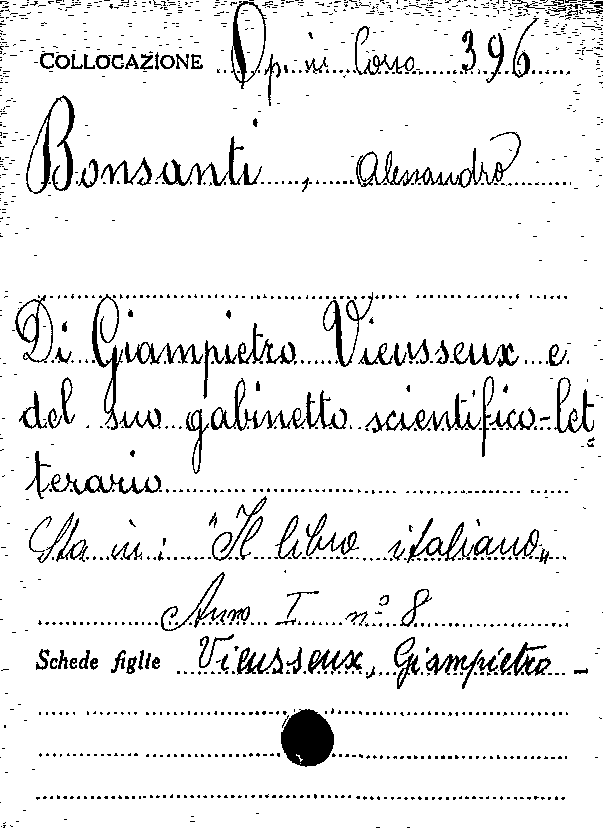 COLLOCAZIONE Op. in Corso 396
Bonsanti, Alessandro
Di Giampietro Vieusseux e
del suo gabinetto scientifico-let
terario
Sta in: "Il libro italiano"
Anno I nº 8
Schede figlie Vieusseux, Giampietro -